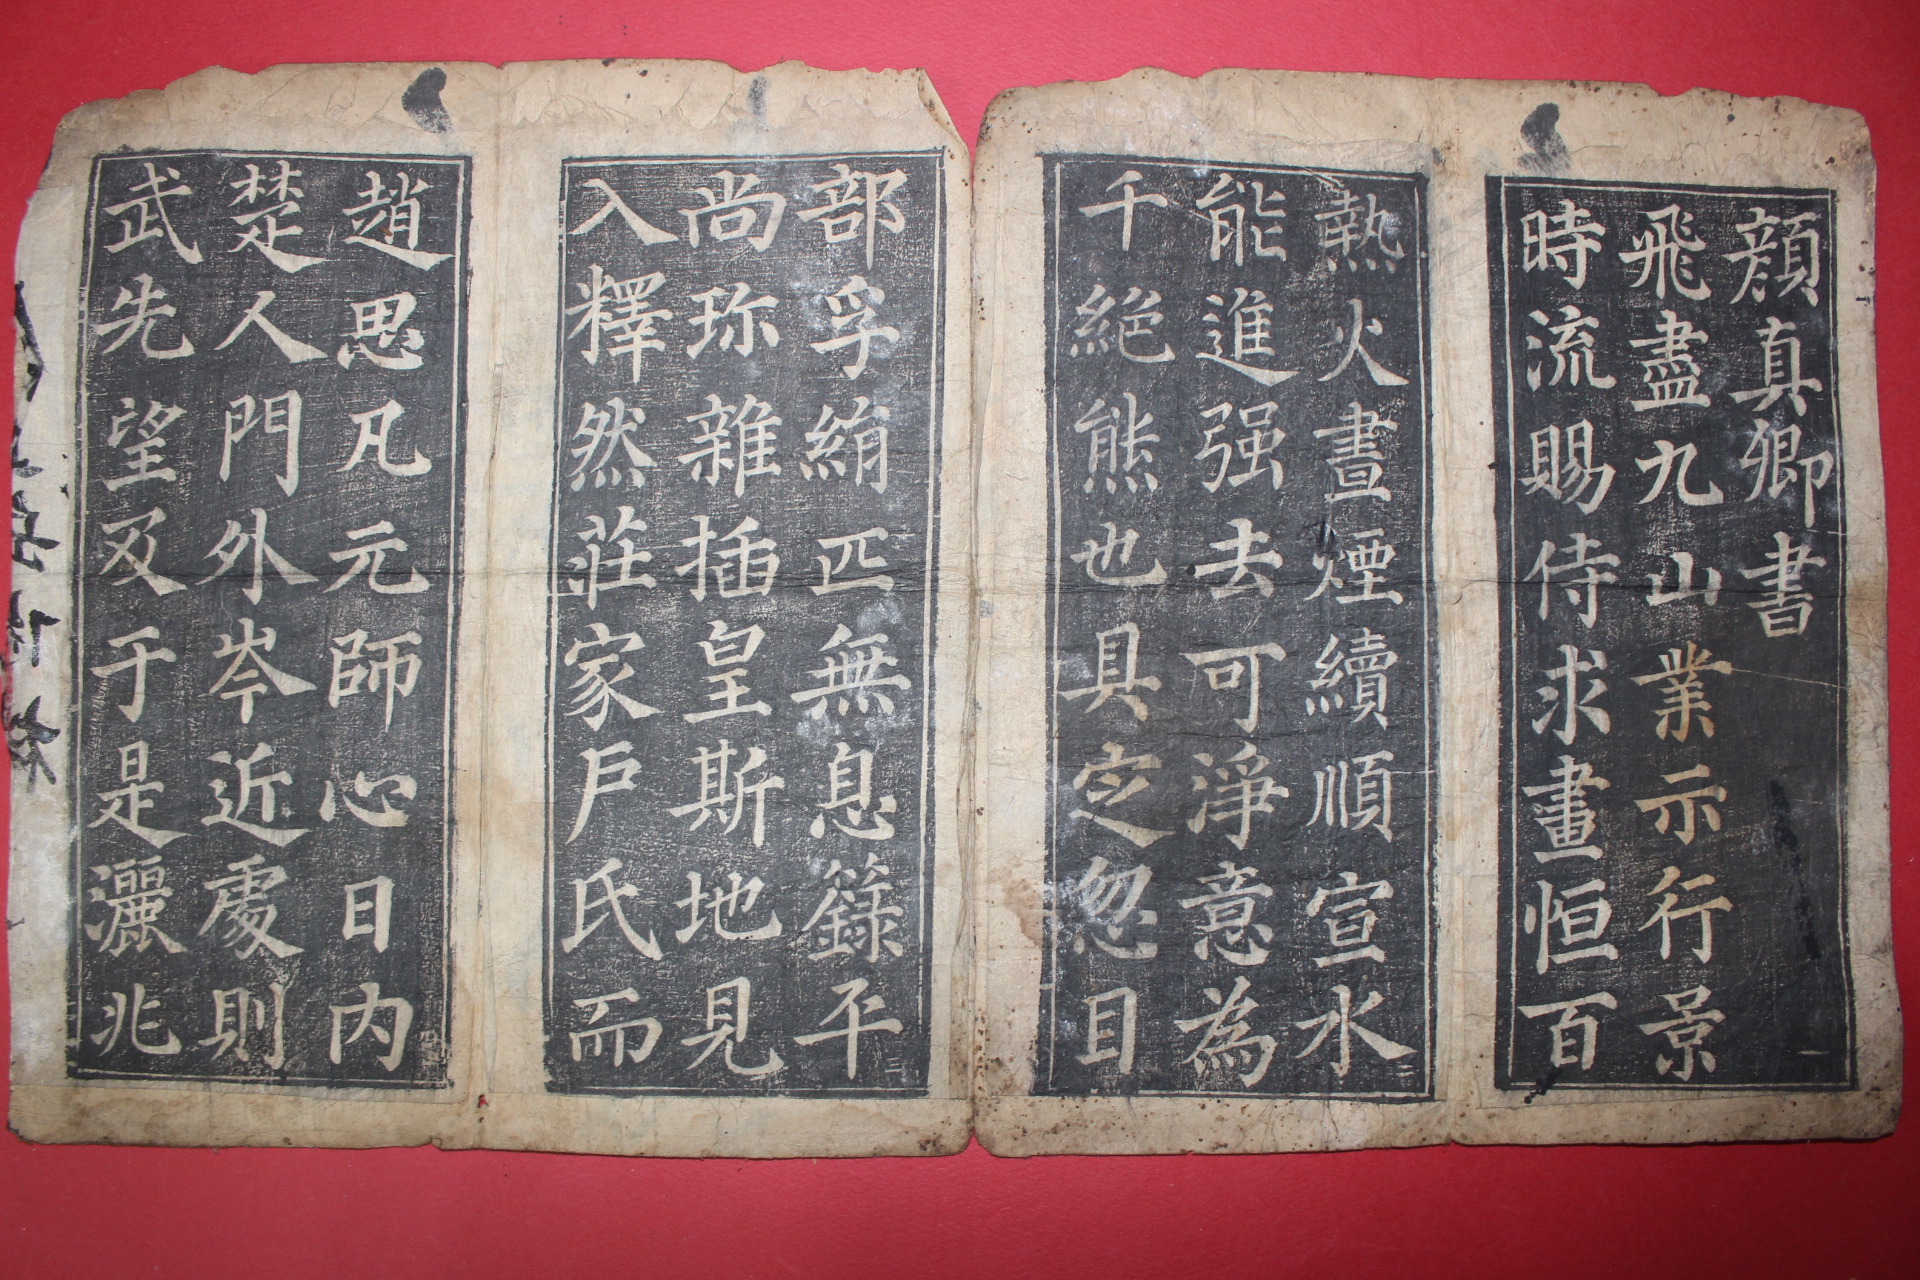 顏真卿書
飛盡九山業示行景
時流賜侍求畫恒百
一
熱火晝煙續順宣水
能進强去可淨意為
千絕熊也具定忽目
二
部孚絹匹無息籙平
尚珎雜插皇斯地見
入釋然莊家戶氏而
三
趙思凡元師心日内
楚人門外岑近處則
武先望及于是灑兆